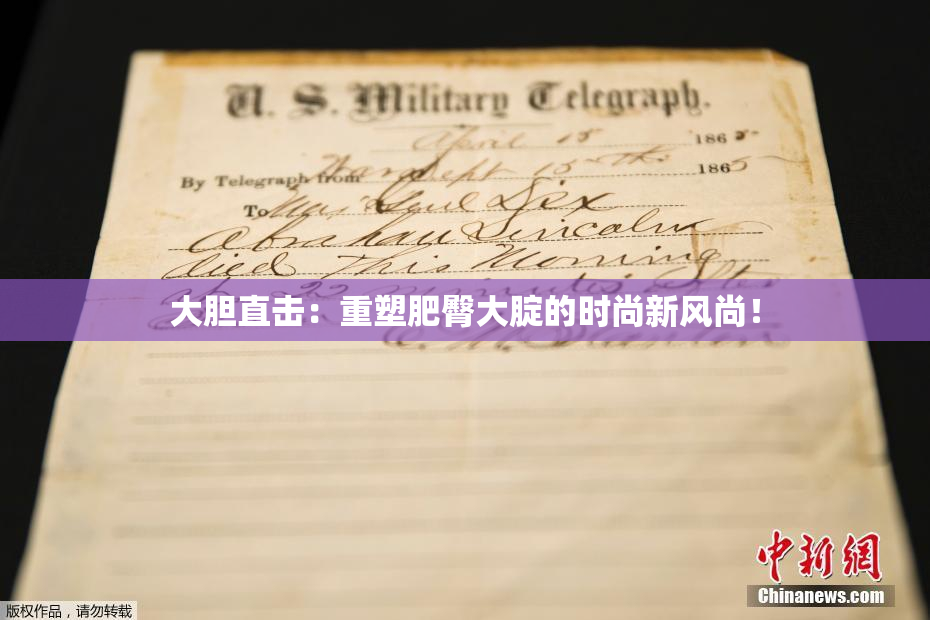 U. S. Military Telegraph.
April 15 1865
By Telegraph from War Dept 15th 1865
To Maj Genl Dix
Abraham Lincoln
died This Morning
at 22 minutes after
大胆直击：重塑肥臀大腚的时尚新风尚！
E. M. Stanton
中新網
Chinanews.com
版权作品，请勿转载